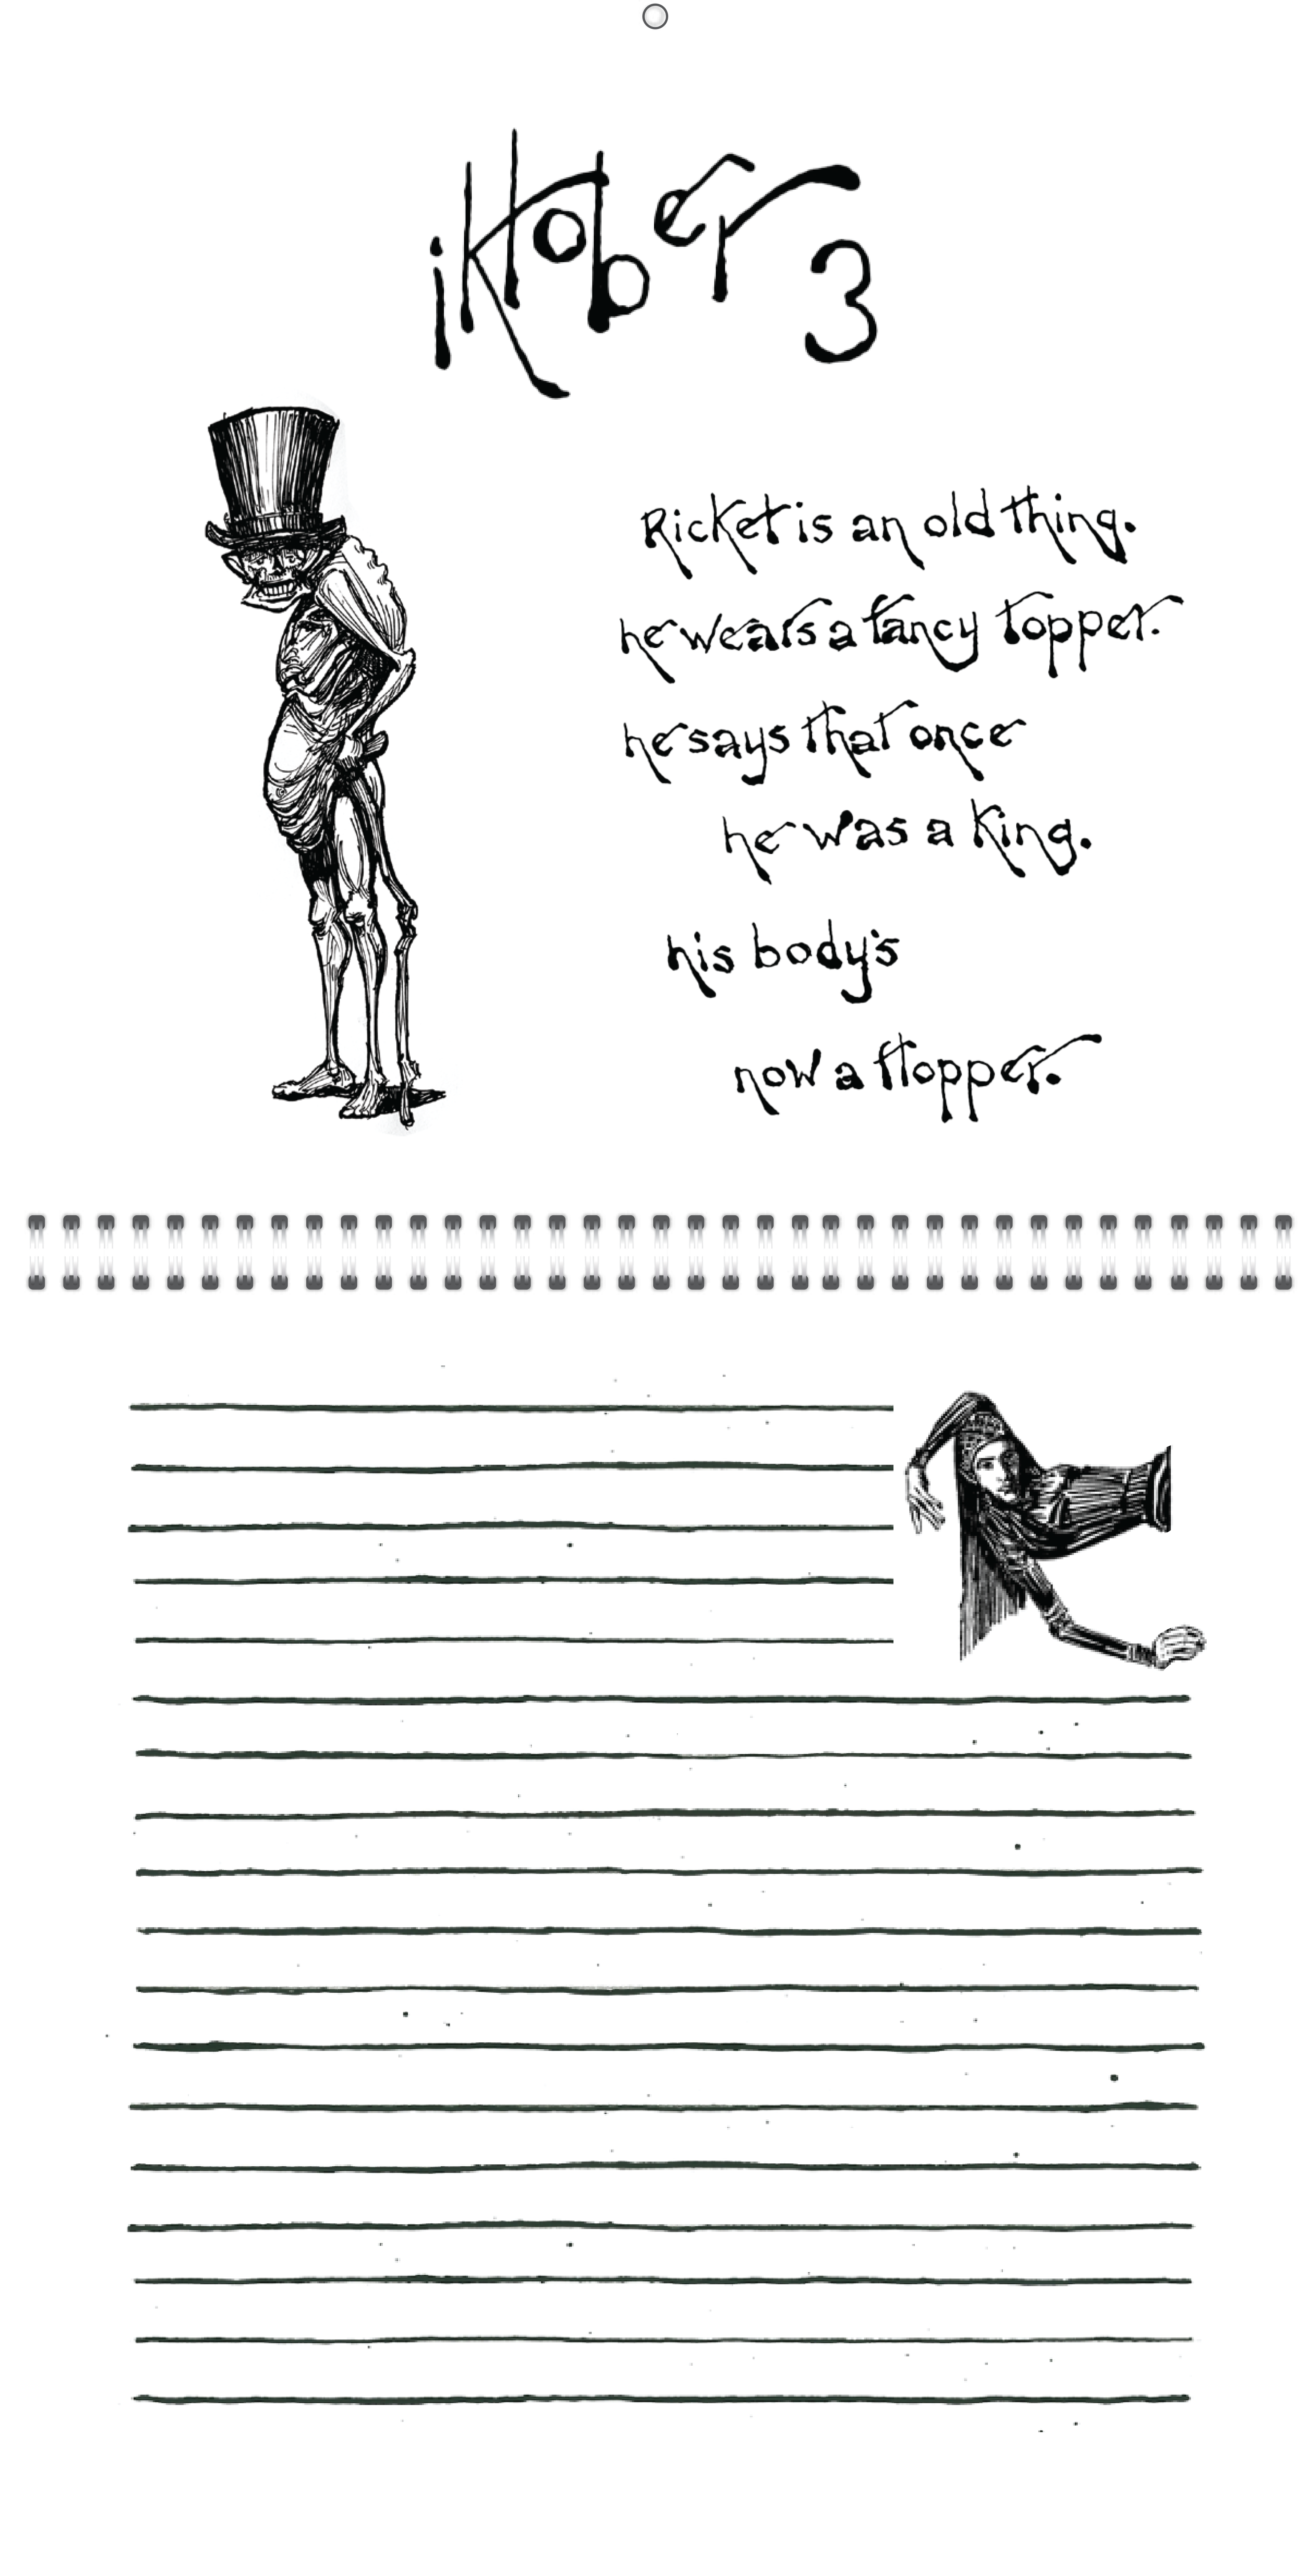 iktober 3
Ricket is an old thing.
he wears a fancy topper.
he says that once
he was a king.
his body's
now a flopper.